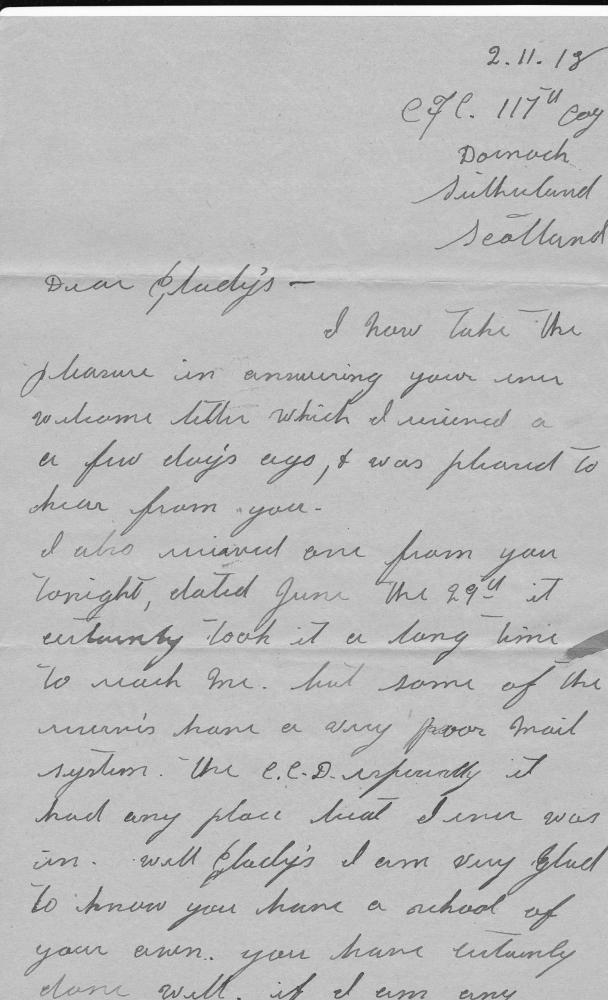 2.11.18
C.F.C. 117th Coy
Dornoch
Sutherland
Scotland
Dear Gladys's —
I now take the
pleasure in answering your ever
welcome letter which I received a
a few day's ago, & was pleased to
hear from you-
I also received one from you
tonight, dated June the 29th it
certainly took it a long time
to reach me. but some of the
reserves have a very poor mail
system. The C.C.D. especially it
had any place beat I ever was
in. well Glady's I am very glad
to know you have a school of
your own. you have certainly
done well. if I am any